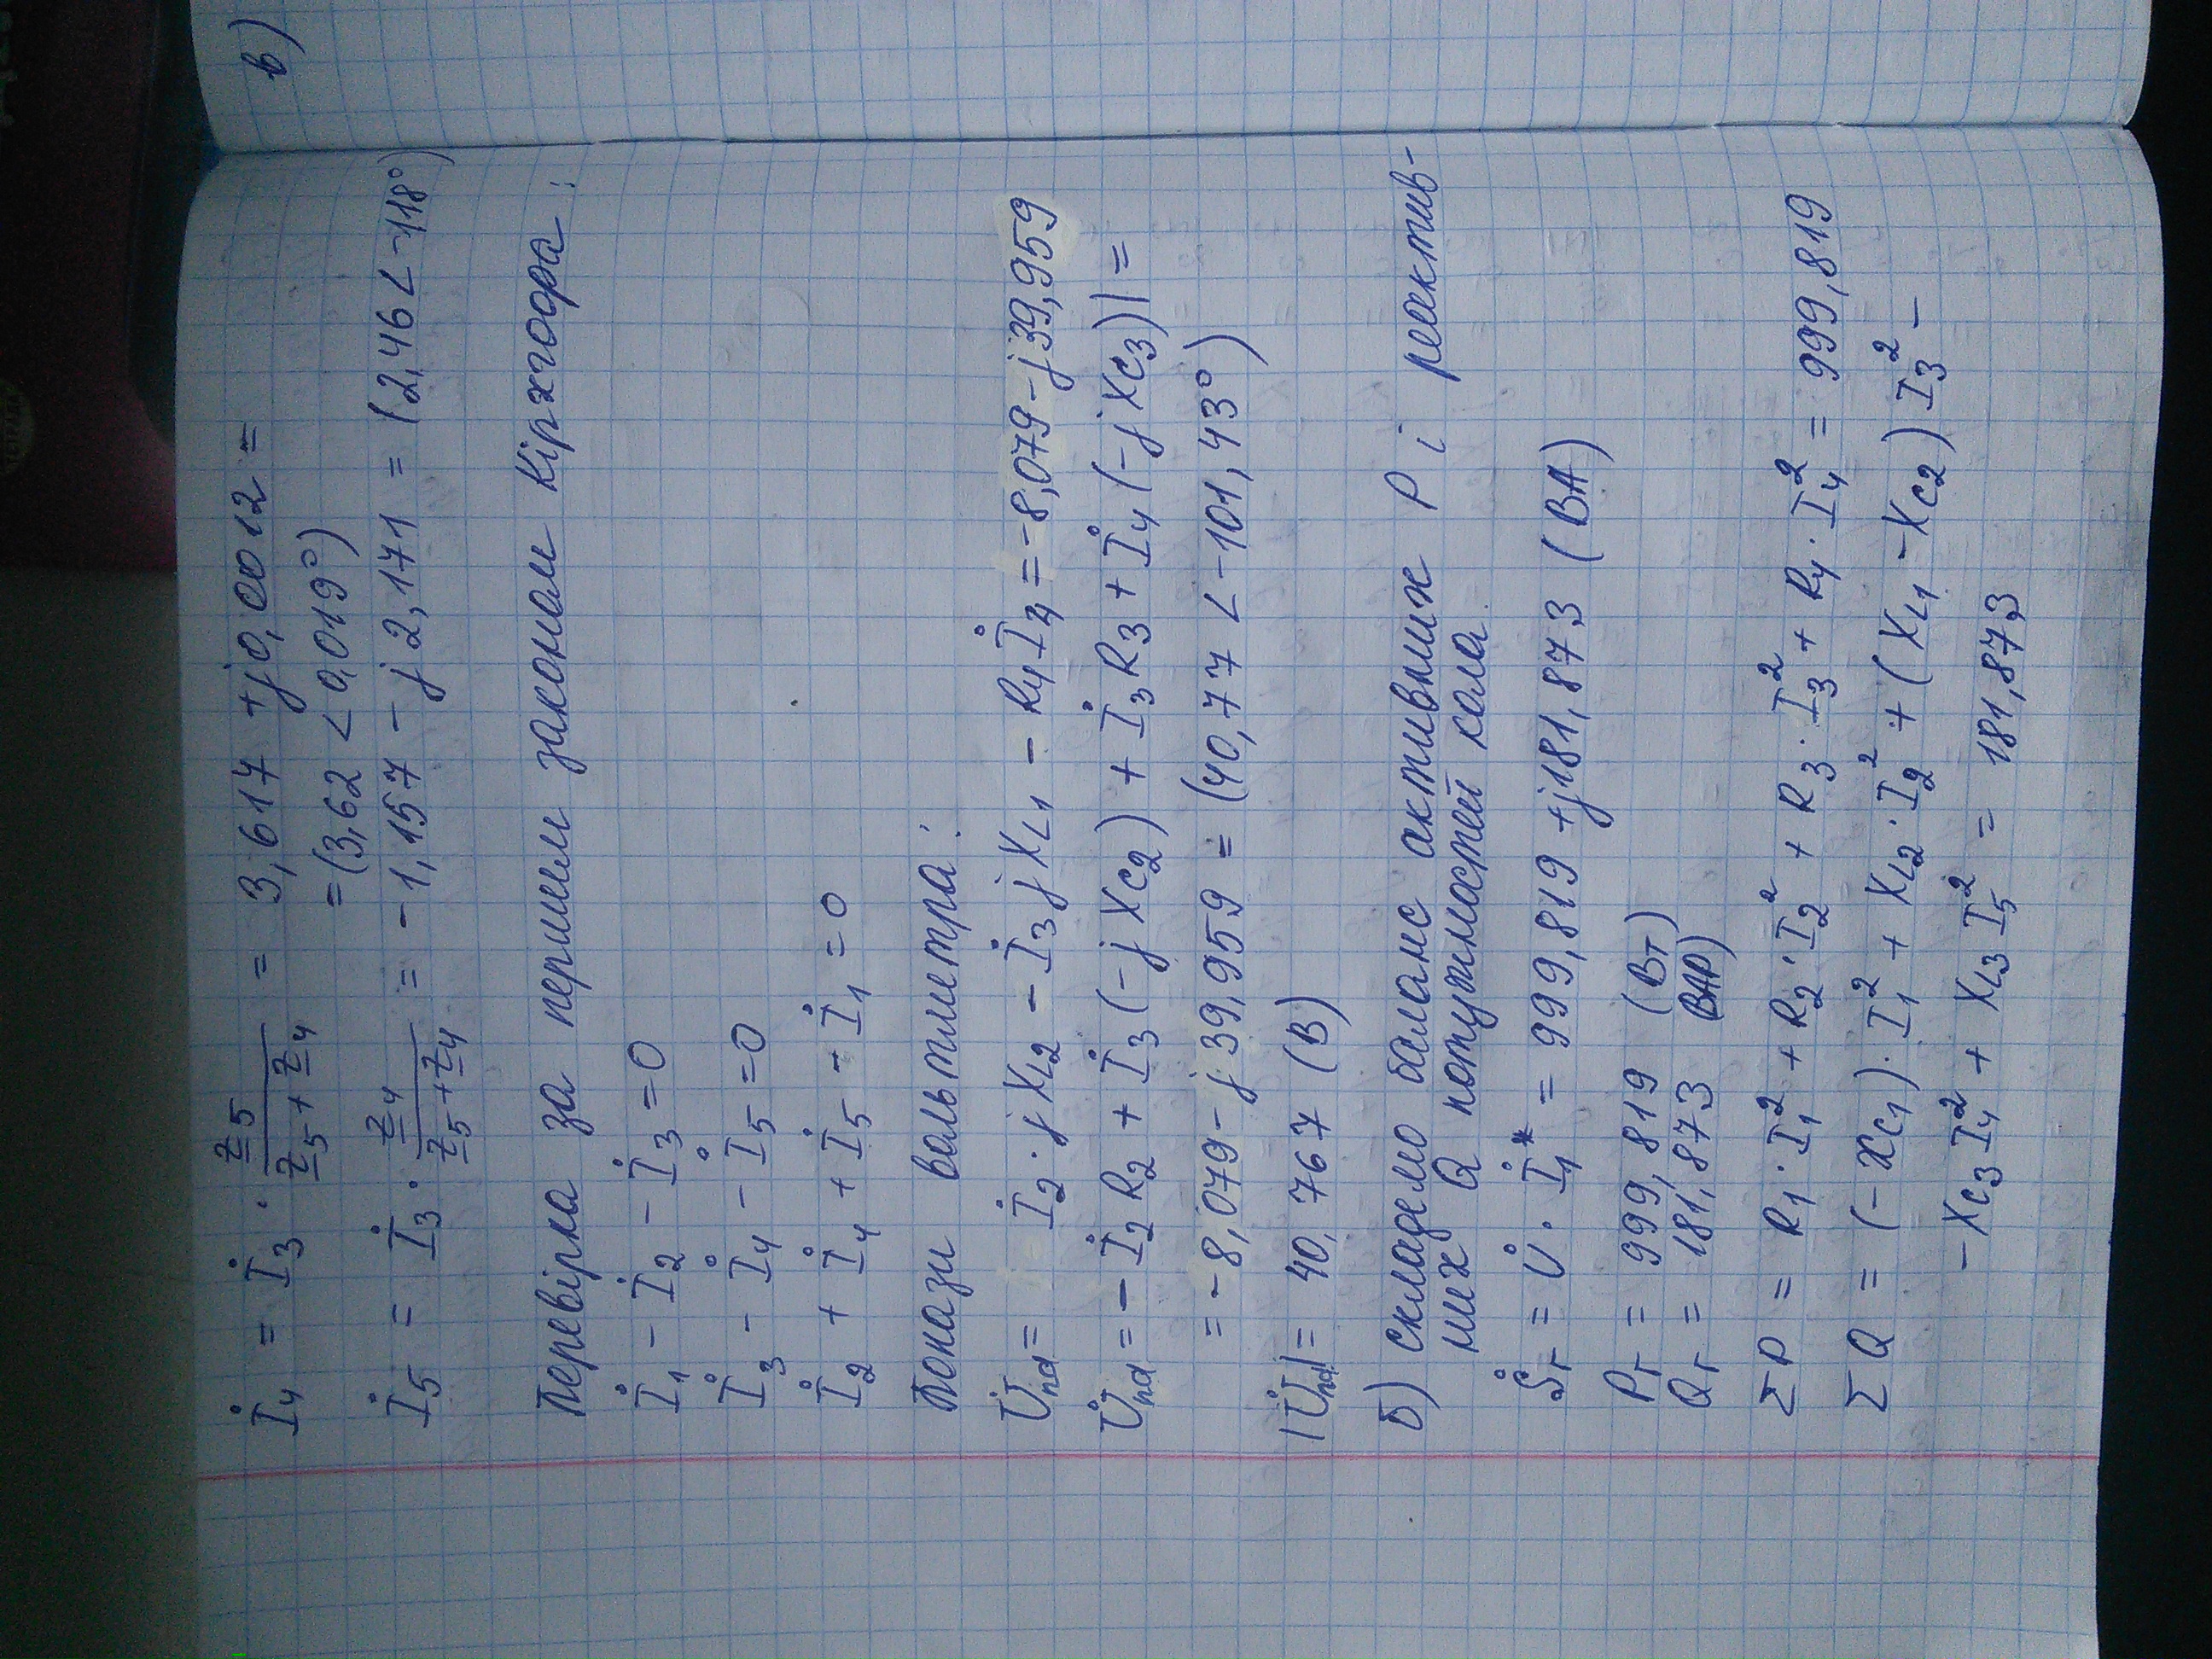 İ₄ = İ₃ · z̲₅ / (z̲₅ + z̲₄) = 3,617 + j0,0012 =
= (3,62 ∠ 0,019°)
İ₅ = İ₃ · z̲₄ / (z̲₅ + z̲₄) = -1,157 - j2,171 = (2,46 ∠ -118°)
Перевірка за першим законом Кірхгофа:
İ₁ - İ₂ - İ₃ = 0
İ₃ - İ₄ - İ₅ = 0
İ₂ + İ₄ + İ₅ - İ₁ = 0
Покази вольтметра:
U̇nd = İ₂ · jXL₂ - İ₃jXL₁ - R₄İ₄ = -8,079 - j39,959
U̇nd = -İ₂R₂ + İ₃(-jXC₂) + İ₃R₃ + İ₄(-jXC₃)| =
= -8,079 - j39,959 = (40,77 ∠ -101,43°)
|U̇nd| = 40,767 (В)
б) складемо баланс активних P і реактив-
них Q потужностей кола.
Ṡг = U̇ · İ₁* = 999,819 + j181,873 (ВА)
Pг = 999,819 (Вт)
Qг = 181,873 (ВАР)
ΣP = R₁·I₁² + R₂·I₂² + R₃·I₃² + R₄·I₄² = 999,819
ΣQ = (-XC₁)·I₁² + XL₂·I₂² + (XL₁ - XC₂)I₃² -
- XC₃I₄² + XL₃I₅² = 181,873
в)